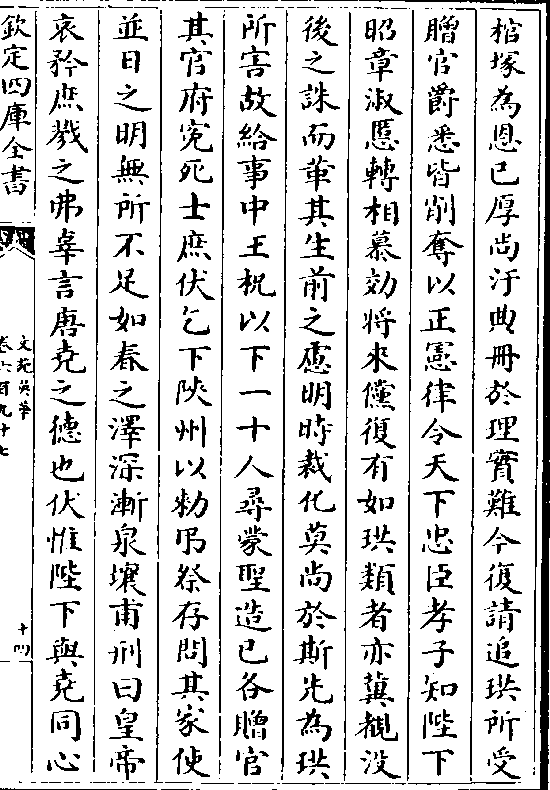 棺塚為恩已厚尚汙典冊於理實難今復請追珙所受
贈官爵悉皆削奪以正憲律令天下忠臣孝子知陛下
昭章淑慝轉相慕効將來儻復有如珙類者亦冀覩没
後之誅而革其生前之慮明時裁化莫尚於斯先為珙
所害故給事中王柷以下一十人尋蒙聖造已各贈官
其官府寃死士庶伏乞下陜州以勑弔祭存問其家使
並日之明無所不足如春之澤深漸泉壤甫刑曰皇帝
哀矜庶戮之弗辜言唐堯之德也伏惟陛下與堯同心
欽定四庫全書
文苑英華
卷六百九十七
十四